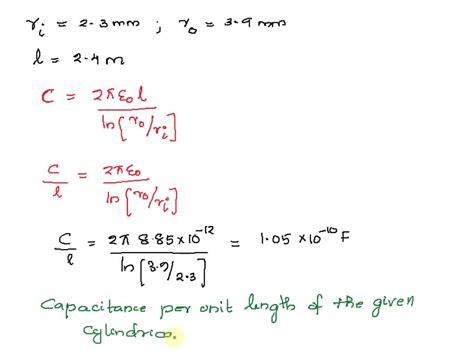 r_i = 2.3 mm ; r_o = 3.9 mm
l = 2.4 m
C = 2πε₀l / ln[r_o/r_i]
C/l = 2πε₀ / ln[r_o/r_i]
C/l = 2π 8.85×10⁻¹² / ln[3.9/2.3] = 1.05 ×10⁻¹⁰ F
Capacitance per unit length of the given
cylindrica.